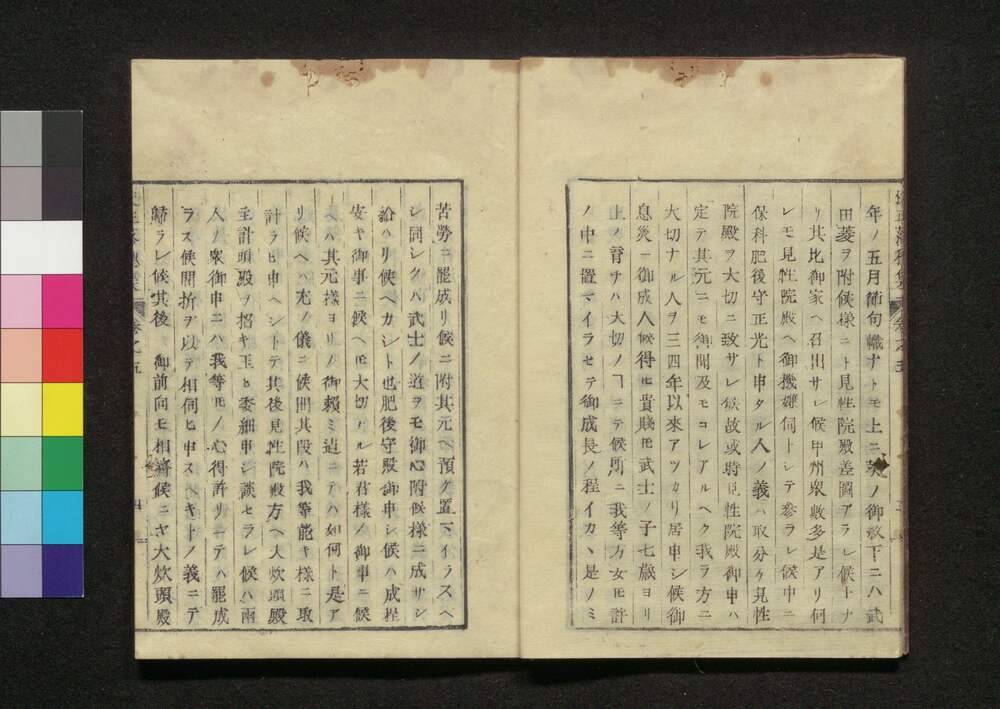 年ノ五月節句幟ナトモ上ニ葵ノ御紋下ニハ武
田菱ヲ附候様ニト見性院殿差圖アラレ候トナ
リ其比御家ヘ召出サレ候甲州衆數多是アリ何
レモ見性院殿ヘ御機嫌伺トシテ參ラレ候中ニ
保科肥後守正光ト申タル人ノ義ハ取分ケ見性
院殿ヲ大切ニ致サレ候故或時見性院殿御申ハ
定テ其元ニモ御聞及モコレアルヘク我ラ方ニ
大切ナル人ヲ三四年以來アツカリ居申シ候御
息災ニ御成人候得𪜈貴賤𪜈武士ノ子七歳ヨリ
上ノ育チハ大切ノヿニテ候所ニ我等方女𪜈許
ノ中ニ置マイラセテ御成長ノ程イカヽ是ノミ
苦勞ニ罷成リ候ニ附其元ヘ預ケ置マイラスヘ
シ同シクハ武士ノ道ヲモ御心附候様ニ成サレ
給ハリ候ヘカシト也肥後守殿御申シ候ハ成程
安キ御事ニ候ヘ𪜈大切ナル若君様ノ御事ニ候
ヘハ其元様ヨリノ御賴ミ迠ニテハ如何ト是ア
リ候ヘハ尤ノ儀ニ候間其段ハ我等能キ様ニ取
計ラヒ申ヘシトテ其後見性院殿方ヘ大炊頭殿
主計頭殿ヲ招キ玉ヒ委細申シ談セラレ候ハ兩
人ノ衆御申ニハ我等𪜈ノ心得許リニテハ罷成
ラス候間折ヲ以テ相伺ヒ申スヘキトノ義ニテ
歸ラレ候其後 御前向モ相濟候ニヤ大炊頭殿
卷之五